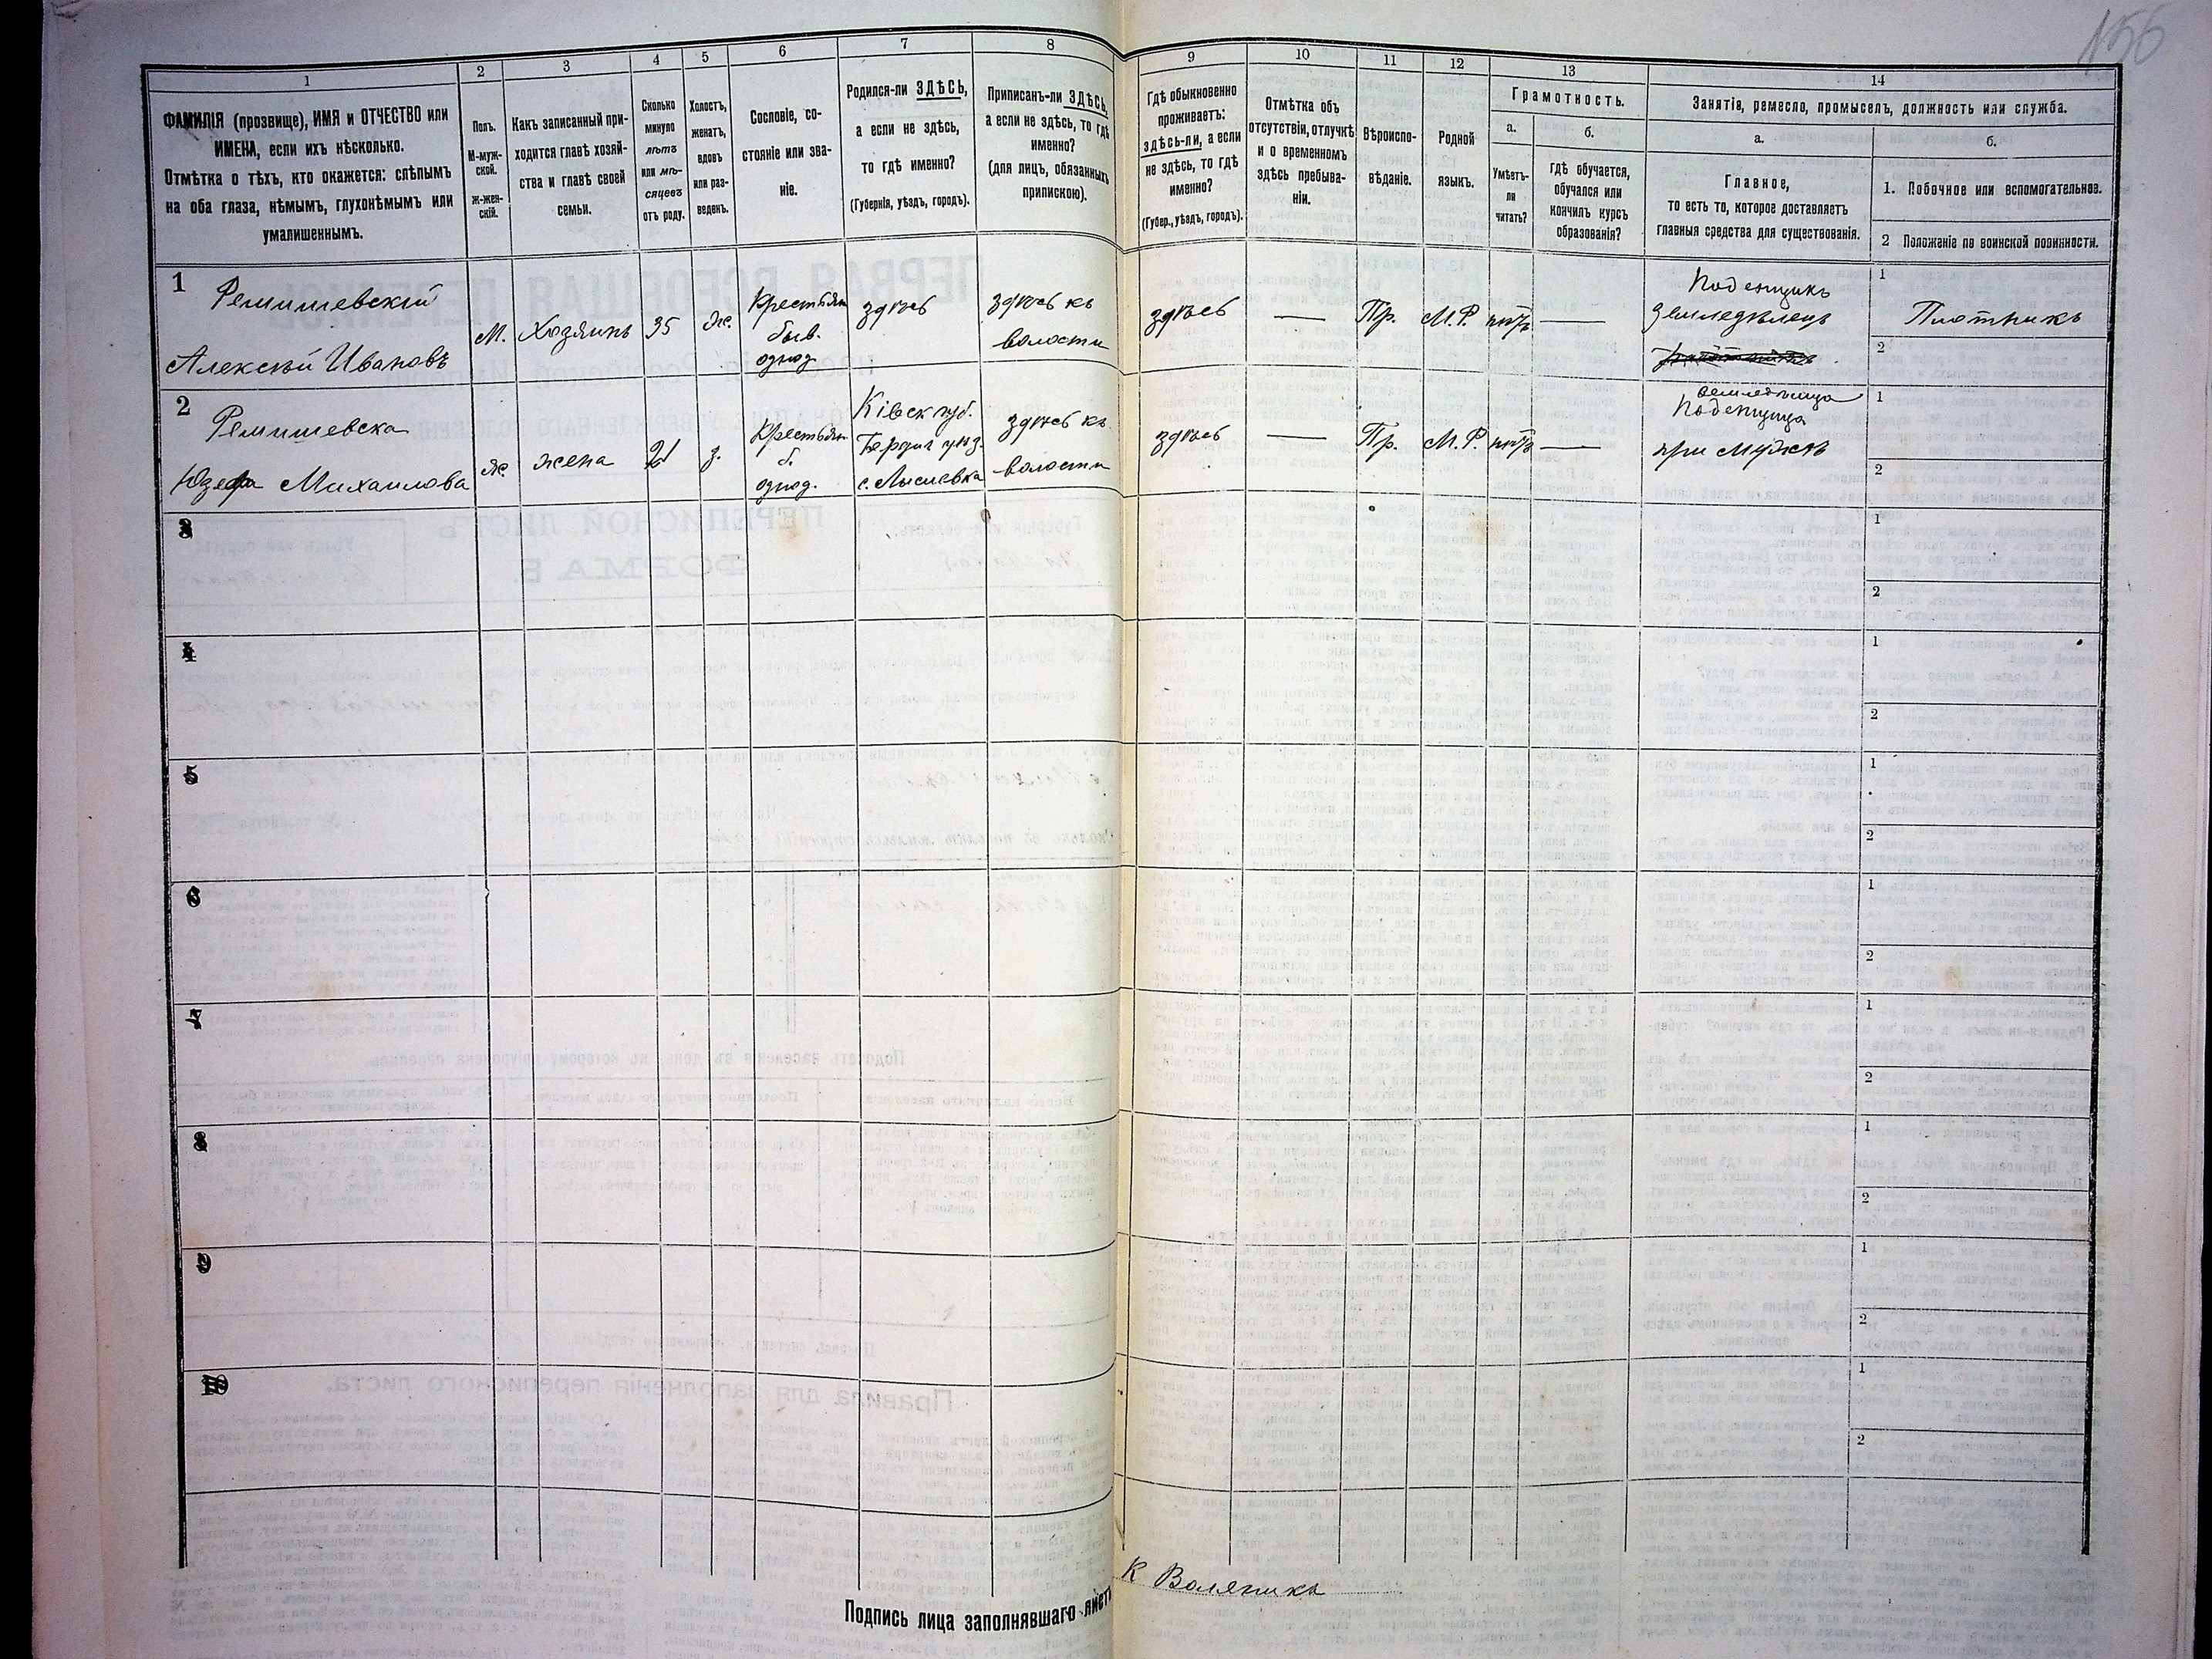 156
1
2
3
4
5
6
7
8
ФАМИЛІЯ (прозвище), ИМЯ и ОТЧЕСТВО или
ИМЕНА, если ихъ нѣсколько.
Отмѣтка о тѣхъ, кто окажется: слѣпымъ
на оба глаза, нѣмымъ, глухонѣмымъ или
умалишеннымъ.
Полъ.
М-муж-
ской.
Ж-жен-
скій.
Какъ записанный при-
ходится главѣ хозяй-
ства и главѣ своей
семьи.
Сколько
минуло
лѣтъ
или мѣ-
сяцевъ
отъ роду.
Холостъ,
женатъ,
вдовъ
или раз-
веденъ.
Сословіе, со-
стояніе или зва-
ніе.
Родился-ли ЗДѢСЬ,
а если не здѣсь,
то гдѣ именно?
(Губернія, уѣздъ, городъ).
Приписанъ-ли ЗДѢСЬ,
а если не здѣсь, то гдѣ
именно?
(для лицъ, обязанныхъ
припискою).
9
10
11
12
13
14
Гдѣ обыкновенно
проживаетъ:
здѣсь-ли, а если
не здѣсь, то гдѣ
именно?
(Губер., уѣздъ, городъ).
Отмѣтка объ
отсутствіи, отлучкѣ
и о временномъ
здѣсь пребыва-
ніи.
Вѣроиспо-
вѣданіе.
Родной
языкъ.
Грамотность.
а.
б.
Умѣетъ-
ли
читать?
гдѣ обучается,
обучался или
кончилъ курсъ
образованія?
Занятія, ремесло, промыселъ, должность или служба.
а.
б.
Главное,
то есть то, которое доставляетъ
главныя средства для существованія.
1. Побочное или вспомогательное.
2 Положеніе по воинской повинности.
1
Ремишевский
Алексѣй Ивановъ
М.
Хозяинъ
35
ж.
Крестьян
быв.
однод.
здѣсь
здѣсь къ
волости
здѣсь
—
Пр.
М.Р.
нѣтъ
—
Поденщикъ
Земледѣлецъ
1
Плотникъ
2
2
Ремишевска
Юзефа Михаилова
ж.
жена
21
з.
Крестьян
б.
однод.
Кіевск губ.
Бердич уѣзд.
с. Лысиевка
здѣсь къ
волости
здѣсь
—
Пр.
М.Р.
нѣтъ
—
Поденщица
при мужѣ
1
2
3
1
2
4
1
2
5
1
2
6
1
2
7
1
2
8
1
2
9
1
2
10
1
2
Подпись лица заполнявшаго листъ